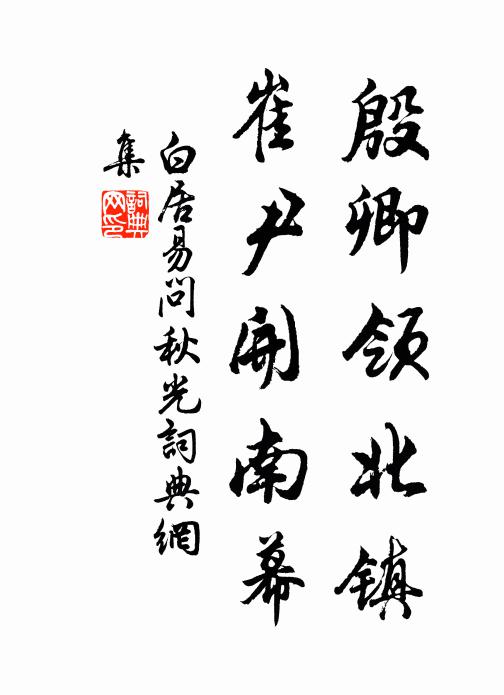 殷卿领北镇
崔尹開南幕
白居易问秋光詞典網
集
詞典
网印